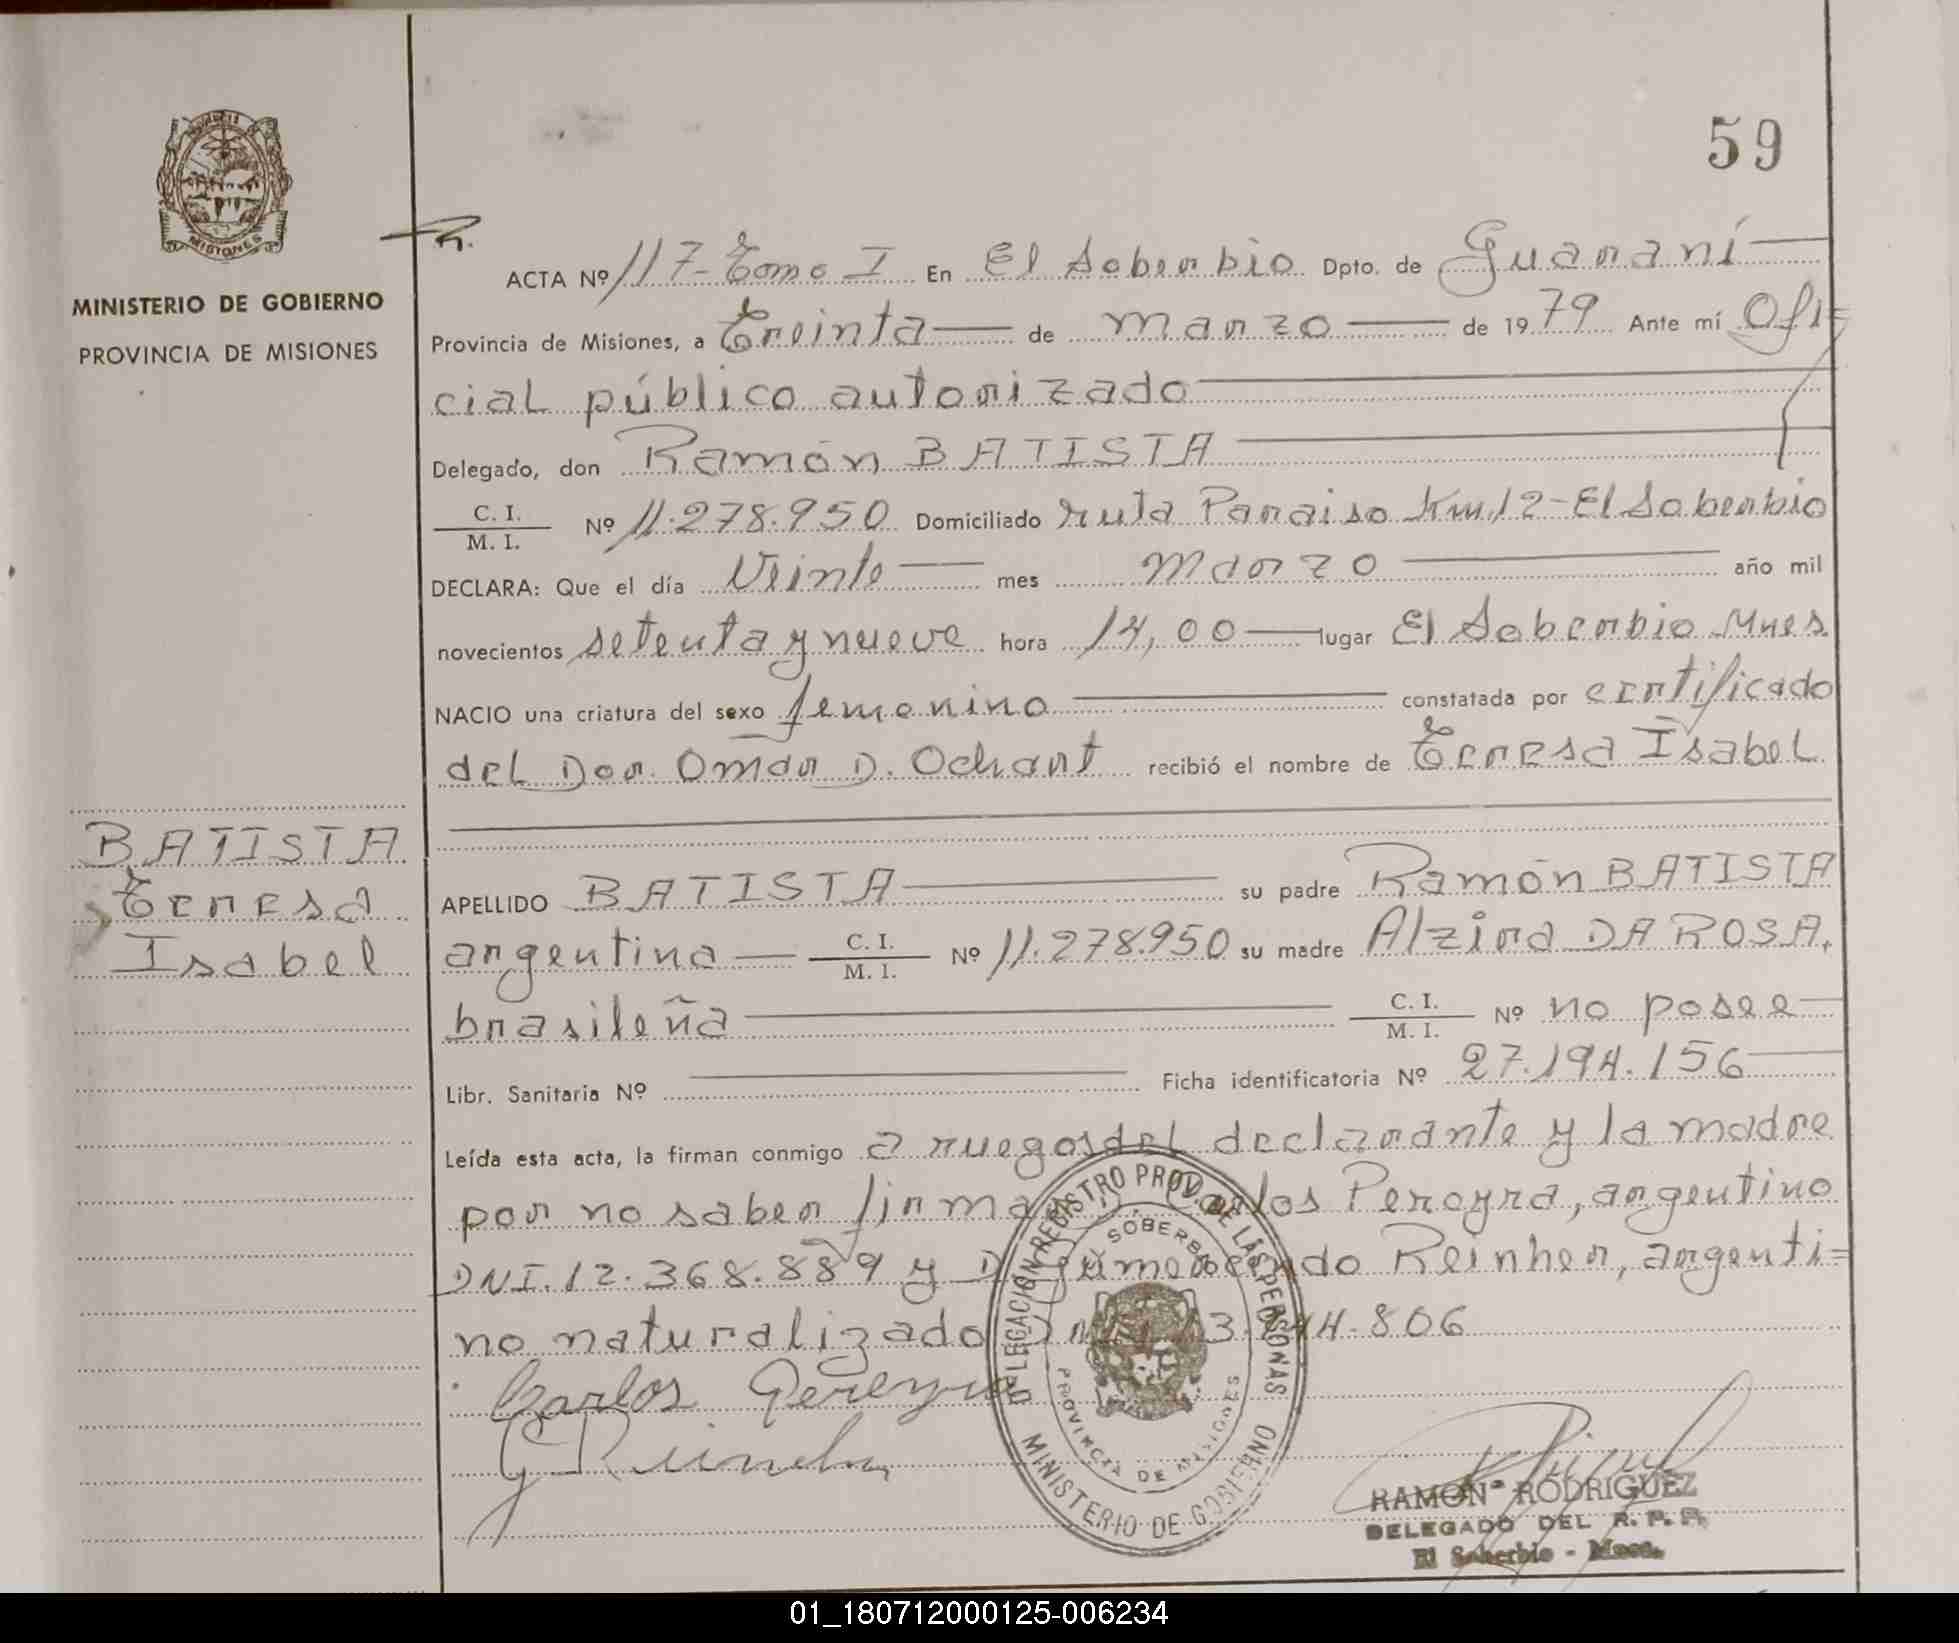 59
MISIONES
MINISTERIO DE GOBIERNO
PROVINCIA DE MISIONES
ACTA Nº 117- Tomo I En El Soberbio Dpto. de Guaraní
Provincia de Misiones, a Treinta de marzo de 1979 Ante mí Ofi=
cial público autorizado
Delegado, don Ramón BATISTA
C. I.
M. I. Nº 11.278.950 Domiciliado ruta Paraiso Km,12-El Soberbio
DECLARA: Que el día Veinte mes marzo año mil
novecientos setenta y nueve hora 14,00 lugar El Soberbio Mnes
NACIO una criatura del sexo femenino constatada por certificado
del Dor. Omar D. Ochart recibió el nombre de Teresa Isabel
BATISTA
Teresa
Isabel
APELLIDO BATISTA su padre Ramón BATISTA
argentina C. I.
M. I. Nº 11.278.950 su madre Alzira DA ROSA,
brasileña C. I.
M. I. Nº no posee
Libr. Sanitaria Nº Ficha identificatoria Nº 27.194.156
Leída esta acta, la firman conmigo a ruegos del declarante y la madre
por no saber firmar, Carlos Pereyra, argentino
DNI.12.368.889 y D. Gumercindo Reinher, argenti=
no naturalizado 44.806
Carlos Pereyra
DELEGACION REGISTRO PROV. DE LAS PERSONAS
SOBERBIO
PROVINCIA DE MISIONES
MINISTERIO DE GOBIERNO
RAMON RODRIGUEZ
DELEGADO DEL R. P. P.
El Soberbio - Mnes.
01_180712000125-006234